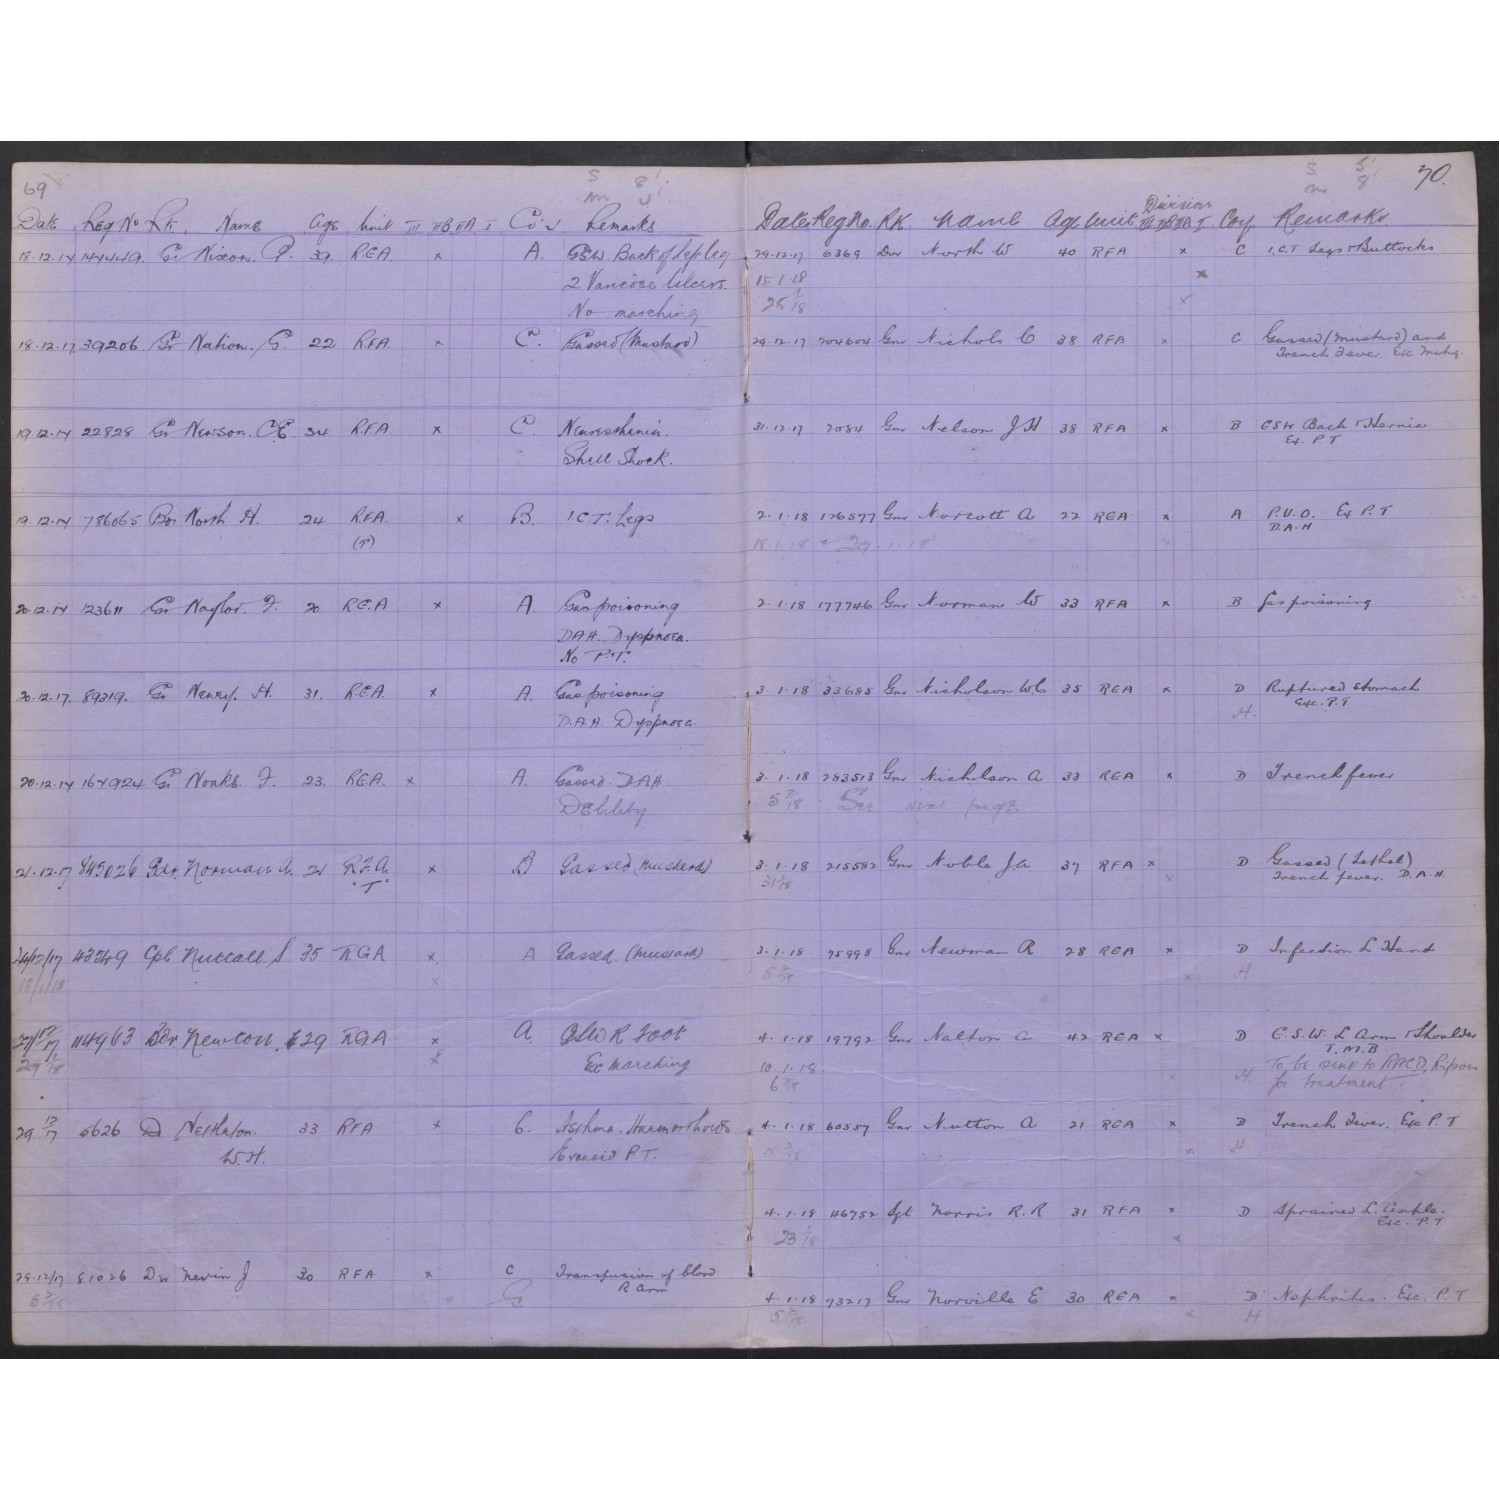 69
Date Reg No Rk. Name Age Unit III IIB IIA I Co's Remarks
18.12.17 144449. Gr Nixon. P. 39 RGA x A. GSW. Back of left leg
2 Varicose Ulcers.
No marching
18.12.17. 39206. Gr Nation. G. 22 RFA. x C. Gassed (Mustard)
19.12.17 22828 Gr Newson. C E 34 RFA. x C. Neuresthenia.
Shell Shock.
19.12.17 786065 Bor North. H. 24 RFA. x B. I.C.T. Legs
(T)
20.12.17 123611 Gr Naylor. F. 20 RGA x A. Gas poisoning
DAH. Dyspnoea.
No P.T.
20.12.17. 89319. Gr Newry. H. 31. RGA. x A. Gas poisoning
D.A.H. Dyspnoea.
20.12.17 167924 Gr Noaks. F. 23. RGA. x A. Gassed. DAH
Debility
21.12.17 845026 Bdr. Norman A. 21 R.F.A. x B Gassed (Mustard)
T.
26/12/17 43549 Cpl Nuttall S 35 RGA x A Gassed (Mustard)
18/1/18 x
27/12/17 114963 Bdr Newton. 29 RGA x A GSW R Foot
29 1/18 x Ex marching
29 12/17 5626 D 33 RFA x C. Asthma. Haemorrhoids
W.H. Excused P.T.
29.12/17 81026 Dvr Nevin J 30 RFA x C Transfusion of blood
R Arm
5 2/18 G
70.
Division
Date Reg No. RK. Name Age Unit III IIB IIA I Coy. Remarks
29.12.17 6369 Dvr North W 40 RFA x C I.C.T Legs + Buttocks
15.1.18 x
25 1/18 x
29.12.17 204604 Gnr Nichols C 38 RFA x C Gassed (mustard) and
Trench Fever. Exc Mchg.
31.12.17 2084 Gnr Nelson J H 38 RFA x B GSW Back + Hernia
Ex. P T
2.1.18 126577 Gnr Norcott A 22 RGA x A P.U.O. Ex P.T
D.A.H
18.1.18 + 29.1.18 x
2.1.18 177746 Gnr Norman W 33 RFA x B Gas poisoning
3.1.18 33685 Gnr Nicholson W C 35 RGA x D Ruptured stomach
Exc. P.T
H.
3.1.18 283513 Gnr Nicholson A 33 RGA x D Trench fever
5 2/18 See next page
3.1.18 215582 Gnr Noble J.A 37 RFA x D Gassed (Lethal)
31 1/18 x Trench fever. D.A.H.
3.1.18 75998 Gnr Newman R 28 RGA x D Infection L Hand
5 2/18 x H
4.1.18 19792 Gnr Nalton G 42 RGA x D G.S.W. L Arm + Shoulder
T.M.B
10.1.18 To be sent to RACD, Ripon
6 2/18 x H. for treatment.
4.1.18 60557 Gnr Nutton A 21 RGA x D Trench Fever. Exc P.T
5 2/18 x H
4.1.18 46752 Sgt Norris R.R 31 RFA x D Sprained L. Ankle.
Exc. P.T
23 1/18 x
4.1.18 73217 Gnr Norville E 30 RGA x D Nephritis. Exc. P.T
5 2/18 x H